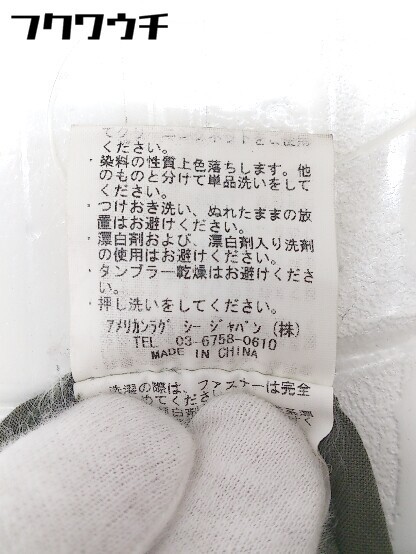 フクワウチ
ください。
・染料の性質上色落ちします。他
のものと分けて単品洗いをして
ください。
・つけおき洗い、ぬれたままの放
置はお避けください。
・漂白剤および、漂白剤入り洗剤
の使用はお避けください。
・タンブラー乾燥はお避けくださ
い。
・押し洗いをしてください。
アメリカンラグ シー ジャパン (株)
TEL 03-6758-0610
MADE IN CHINA
洗濯の際は、ファスナーは完全